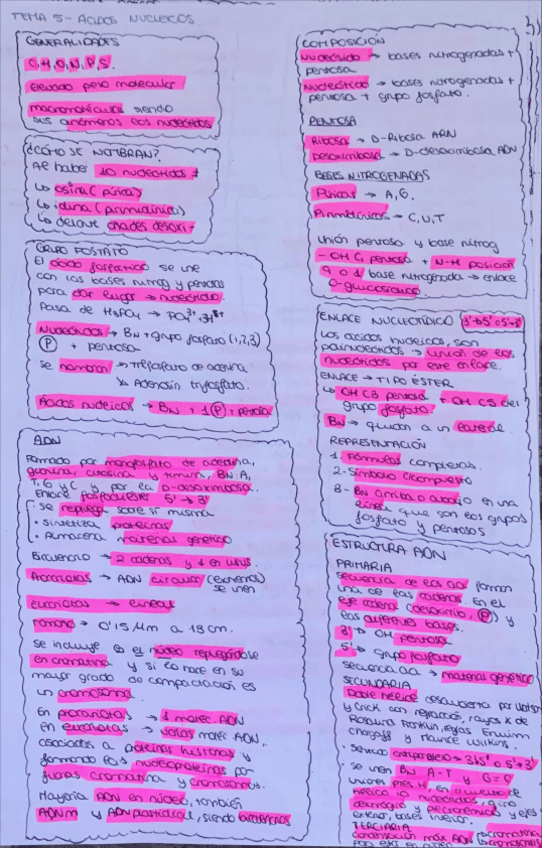 TEMA 5- ACIDOS NUCLEICOS
GENERALIDADES
C,H,O,N,P,S.
Elevado peso molecular
macromoléculas siendo
sus monómeros los nucleótidos
¿CÓMO SE NOMBRAN?
Al haber 10 nucleótidos ≠
↳ osina (púrica)
↳ idina (pirimidínica)
↳ delante añades desoxi-
GRUPO FOSFATO
El ácido fosfórico se une
con las bases nitrog y pentosa
para dar lugar → nucleótido.
Pasa de H3PO4 → PO4 3- + 3H+
Nucleótidos → BN + grupo fosfato (1,2,3)
P + pentosa
se nombran → Trifosfato de
↘ Adenosin trifosfato.
Ácidos nucleicos → BN + 1 P + pentosa
ADN
Formado por monofosfato de adenina,
guanina, citosina y timina, BN: A,
T, G y C y por la D-desoximibosa.
Enlace fosfodiéster 5' → 3'
- se repliega sobre si misma
• sintetiza proteínas
• Almacena material genético
Bicatenario → 2 cadenas y 1 en virus.
Procariotas → ADN circular (extremos)
se unen
eucariotas → lineal
Tamaño → 0'15 µm a 18cm.
se incluye en el núcleo replegándose
en cromatina y si lo hace en su
mayor grado de compactación es
un cromosoma
En procariotas → 1 moléc. ADN
En eucariotas → varias moléc ADN.
asociadas a proteinas histonas y
formando las nucleoproteínas por
fibras cromatina y cromosomas.
Mayoria ADN en núcleo, también
ADNm y ADN plastidial, siendo bicatenarios
COMPOSICIÓN
Nucleósido → bases nitrogenadas +
pentosa
Nucleótido → bases nitrogenadas +
pentosa + grupo fosfato.
PENTOSA
Ribosa → D-Ribosa ARN
Desoximibosa → D-desoximibosa ADN
BASES NITROGENADAS
Púricas → A,G.
Pirimidínicas → C,U,T
Unión pentosa y base nitrog
- OH C1 pentosa + N-H posición
9 o 1 base nitrogenada → enlace
ENLACE NUCLEOTÍDICO 3'→5' o 5'→3'
Los ácidos nucleicos, son
polinucleótidos → unión de los
nucleótidos por este enlace.
ENLACE → TIPO ÉSTER
↳ OH C3 pentosa + OH C5 del
grupo fosfato.
BN → quedan a un lateral
REPRESENTACIÓN
1- Fórmulas complejas.
2- Símbolo
3- BN arriba o abajo en una
línea que son los grupos
fosfato y pentosas
ESTRUCTURA ADN
PRIMARIA
secuencia de los forman
una de las cadenas. En el
eje cadena (desoximib, P) y
las diferentes bases.
3' → OH pentosa
5' → grupo fosfato
secuencia → material genético
SECUNDARIA
Doble hélice descubierta por Watson
y Crick con refracción, rayos X de
Rosalind Franklin, reglas Erwin
Chagaff y Maurice Wilkins.
• sentido antiparalelo → 3'→5' o 5'→3'
• se unen BN A-T y G≡C
uniones ptes H,
hélice 10 nucleótidos, giro
dextrógiro y plectonémico y ejes
exterior, bases interior.
TERCIARIA
condensación más ADN